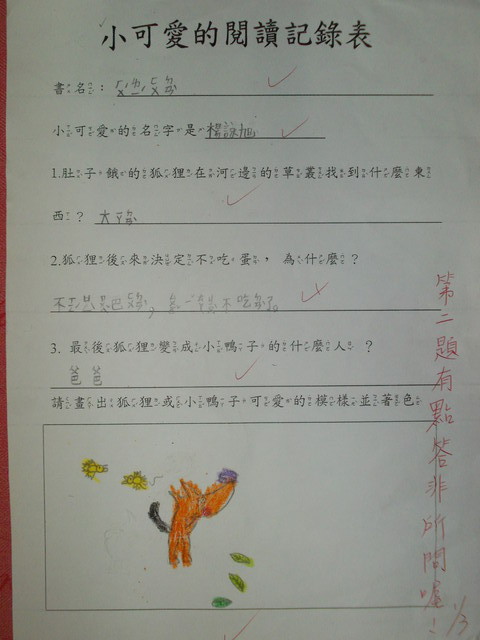 小可愛的閱讀記錄表
書名：
小可愛的名字是
1.肚子餓的狐狸在河邊的草叢找到什麼東
西？大
2.狐狸後來決定不吃蛋，為什麼？
不吃
3. 最後狐狸變成小鴨子的什麼人 ？
爸爸
請畫出狐狸或小鴨子可愛的模樣並著色
第二題有點答非所問喔！
1/3